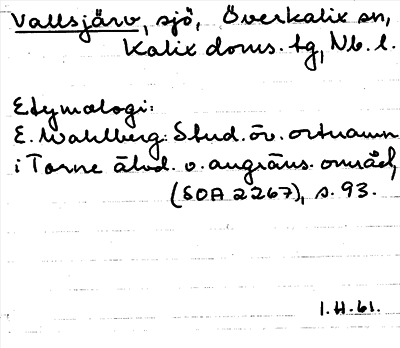 Vallsjärv, sjö, Överkalix sn,
Kalix doms. tg, Nb. l.
Etymologi:
E. Wahlberg: Stud. öv. ortnamn
i Torne älvd. o. angräns. område,
(SOA 2267), s. 93.
I.H.61.